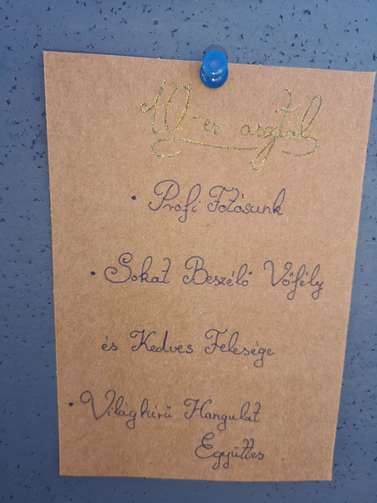 10-es asztal
• Profi Fotósunk
• Sokat Beszélő Vőfély
és Kedves Felesége
• Világhírű Hangulat
Együttes